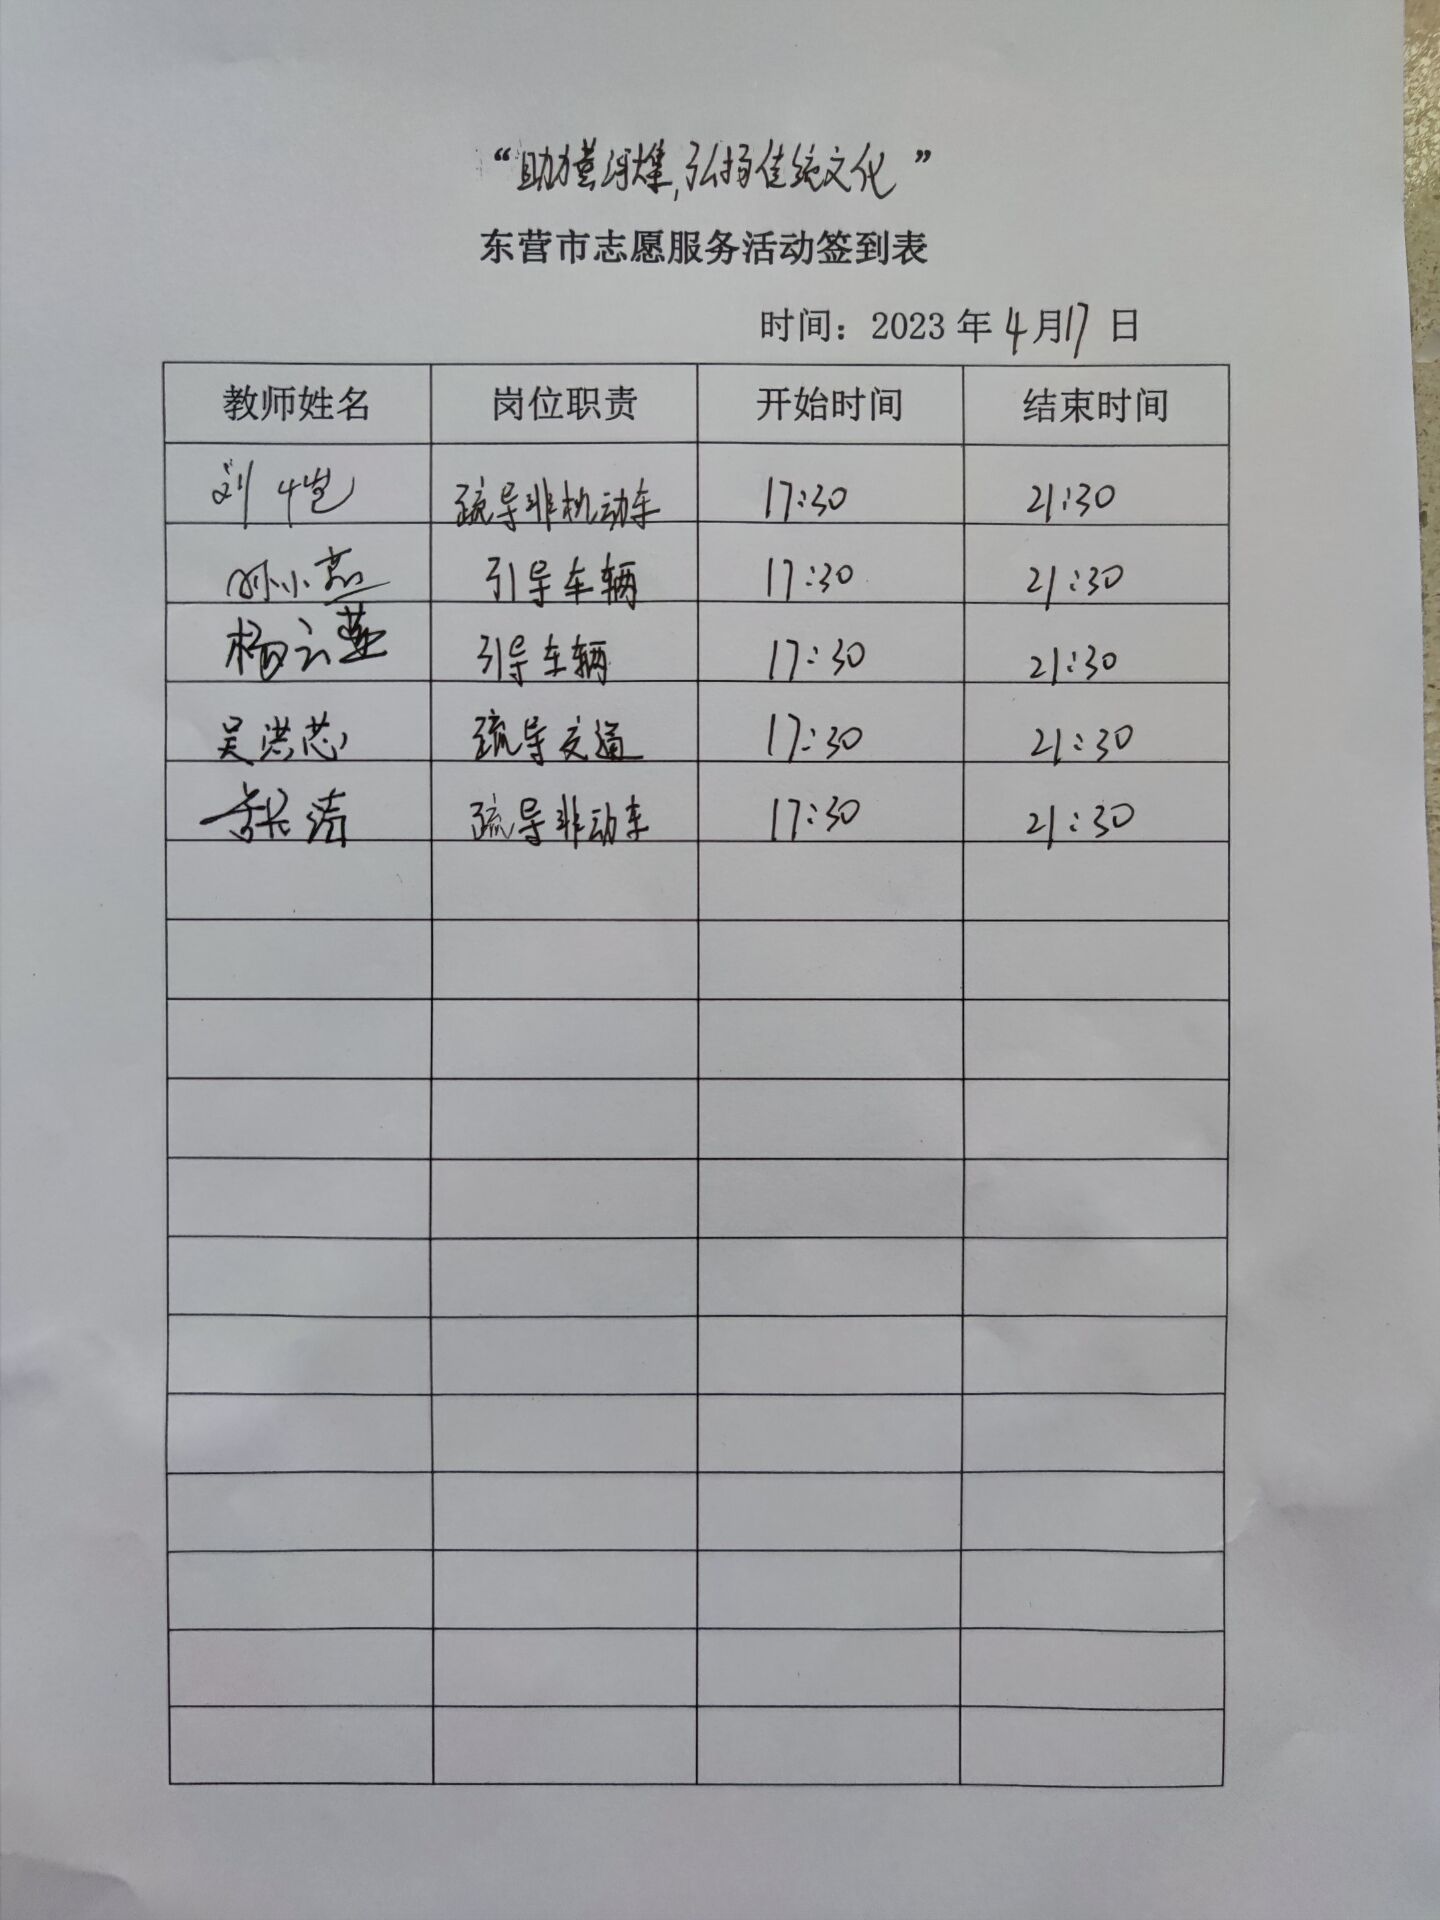 “助力董河大集，弘扬传统文化”
东营市志愿服务活动签到表
时间：2023 年 4 月 17 日
教师姓名 岗位职责 开始时间 结束时间
刘恺 疏导非机动车 17:30 21:30
孙小燕 引导车辆 17:30 21:30
杨云燕 引导车辆 17:30 21:30
吴洪芯 疏导交通 17:30 21:30
张清 疏导非动车 17:30 21:30